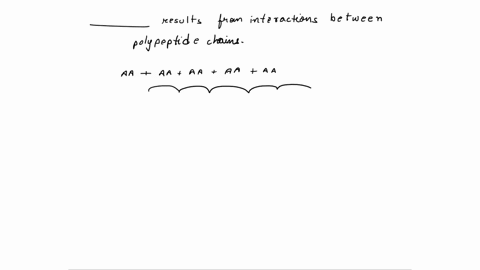 ________ results from interactions between
polypeptide chains.
AA + AA + AA + AA + AA